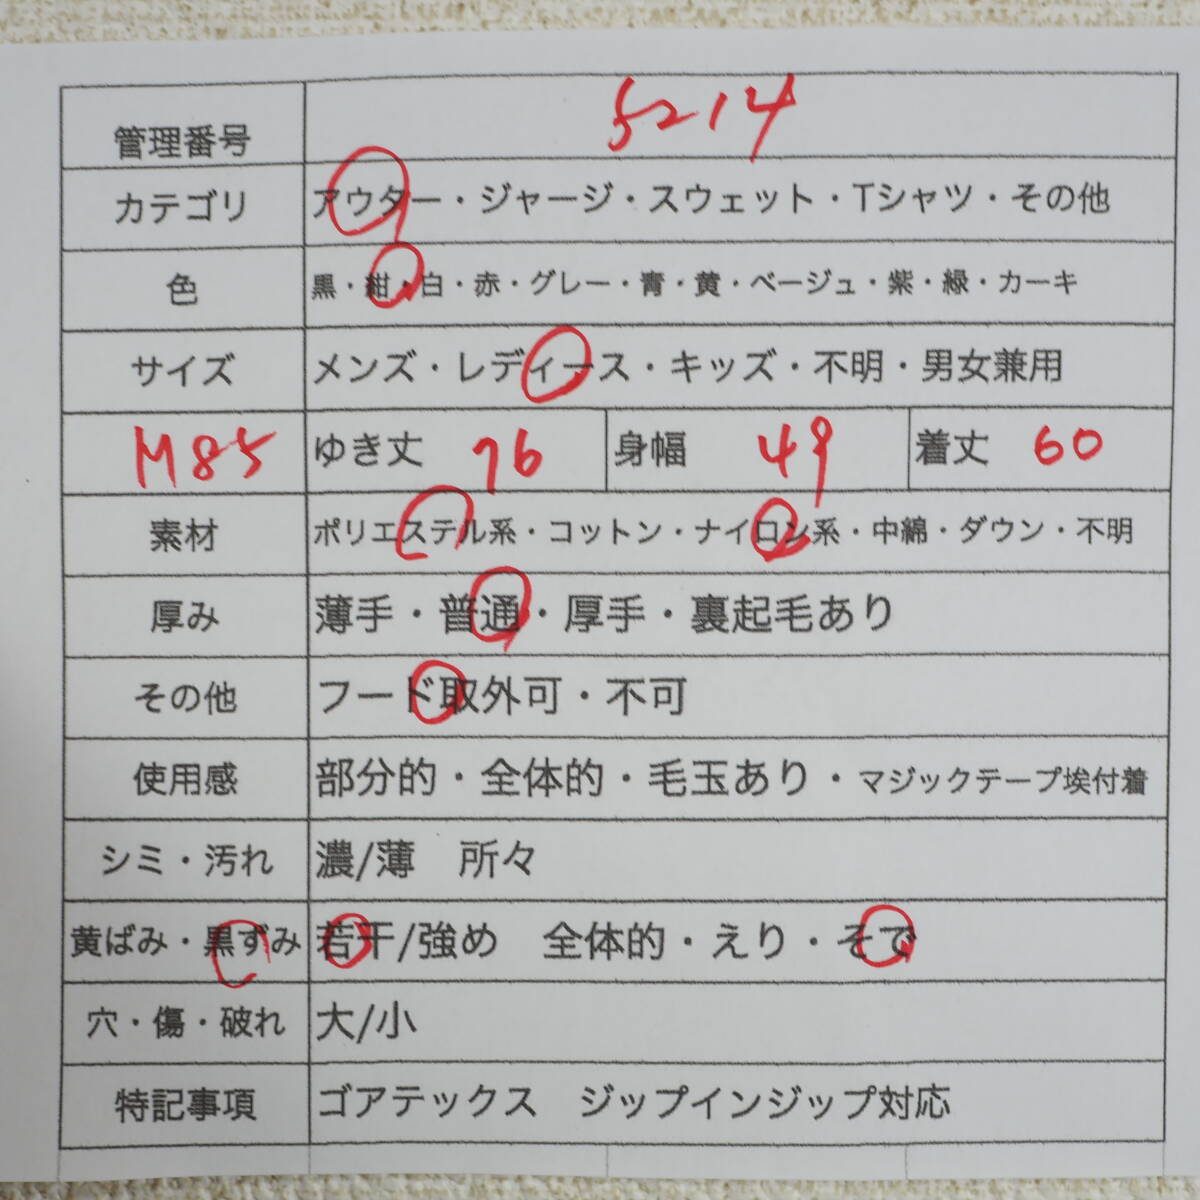 管理番号 5214
カテゴリ アウター・ジャージ・スウェット・Tシャツ・その他
色 黒・紺・白・赤・グレー・青・黄・ベージュ・紫・緑・カーキ
サイズ メンズ・レディース・キッズ・不明・男女兼用
M85 ゆき丈 76 身幅 49 着丈 60
素材 ポリエステル系・コットン・ナイロン系・中綿・ダウン・不明
厚み 薄手・普通・厚手・裏起毛あり
その他 フード取外可・不可
使用感 部分的・全体的・毛玉あり・マジックテープ埃付着
シミ・汚れ 濃/薄 所々
黄ばみ・黒ずみ 若干/強め 全体的・えり・そで
穴・傷・破れ 大/小
特記事項 ゴアテックス ジップインジップ対応